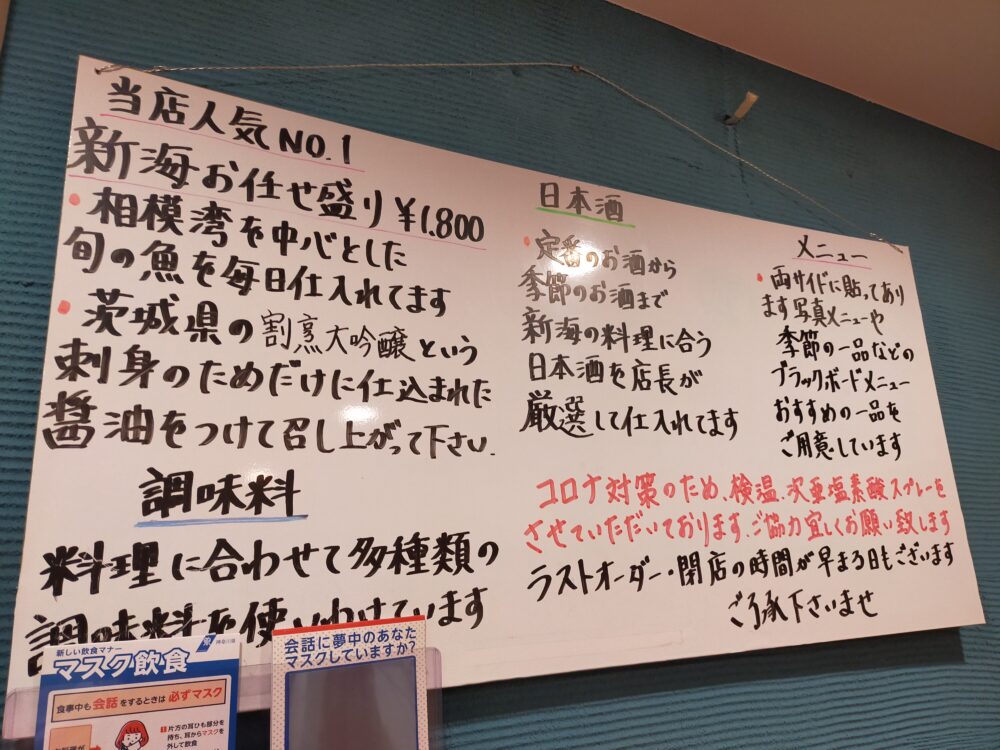 当店人気NO.1
新海お任せ盛り ¥1.800
・相模湾を中心とした
旬の魚を毎日仕入れてます
・茨城県の割烹大吟醸という
刺身のためだけに仕込まれた
醤油をつけて召し上がって下さい.
調味料
料理に合わせて多種類の
調味料を使いわけています
日本酒
・定番のお酒から
季節のお酒まで
新海の料理に合う
日本酒を店長が
厳選して仕入れてます
メニュー
・両サイドに貼ってあり
ます写真メニューや
季節の一品などの
ブラックボードメニュー
おすすめの一品を
ご用意しています
コロナ対策のため、検温、次亜塩素酸スプレーを
させていただいております。ご協力宜しくお願い致します
ラストオーダー・閉店の時間が早まる日もございます
ご了承下さいませ
新しい飲食マナー
神奈川県
マスク飲食
食事中も会話をするときは必ずマスク
1片方の耳ひも部分を
持ち、耳からマスクを
外して飲食
会話に夢中のあなた
マスクしていますか?